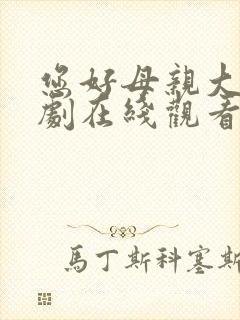 您好母親大
劇在綫觀看
馬丁斯科塞斯